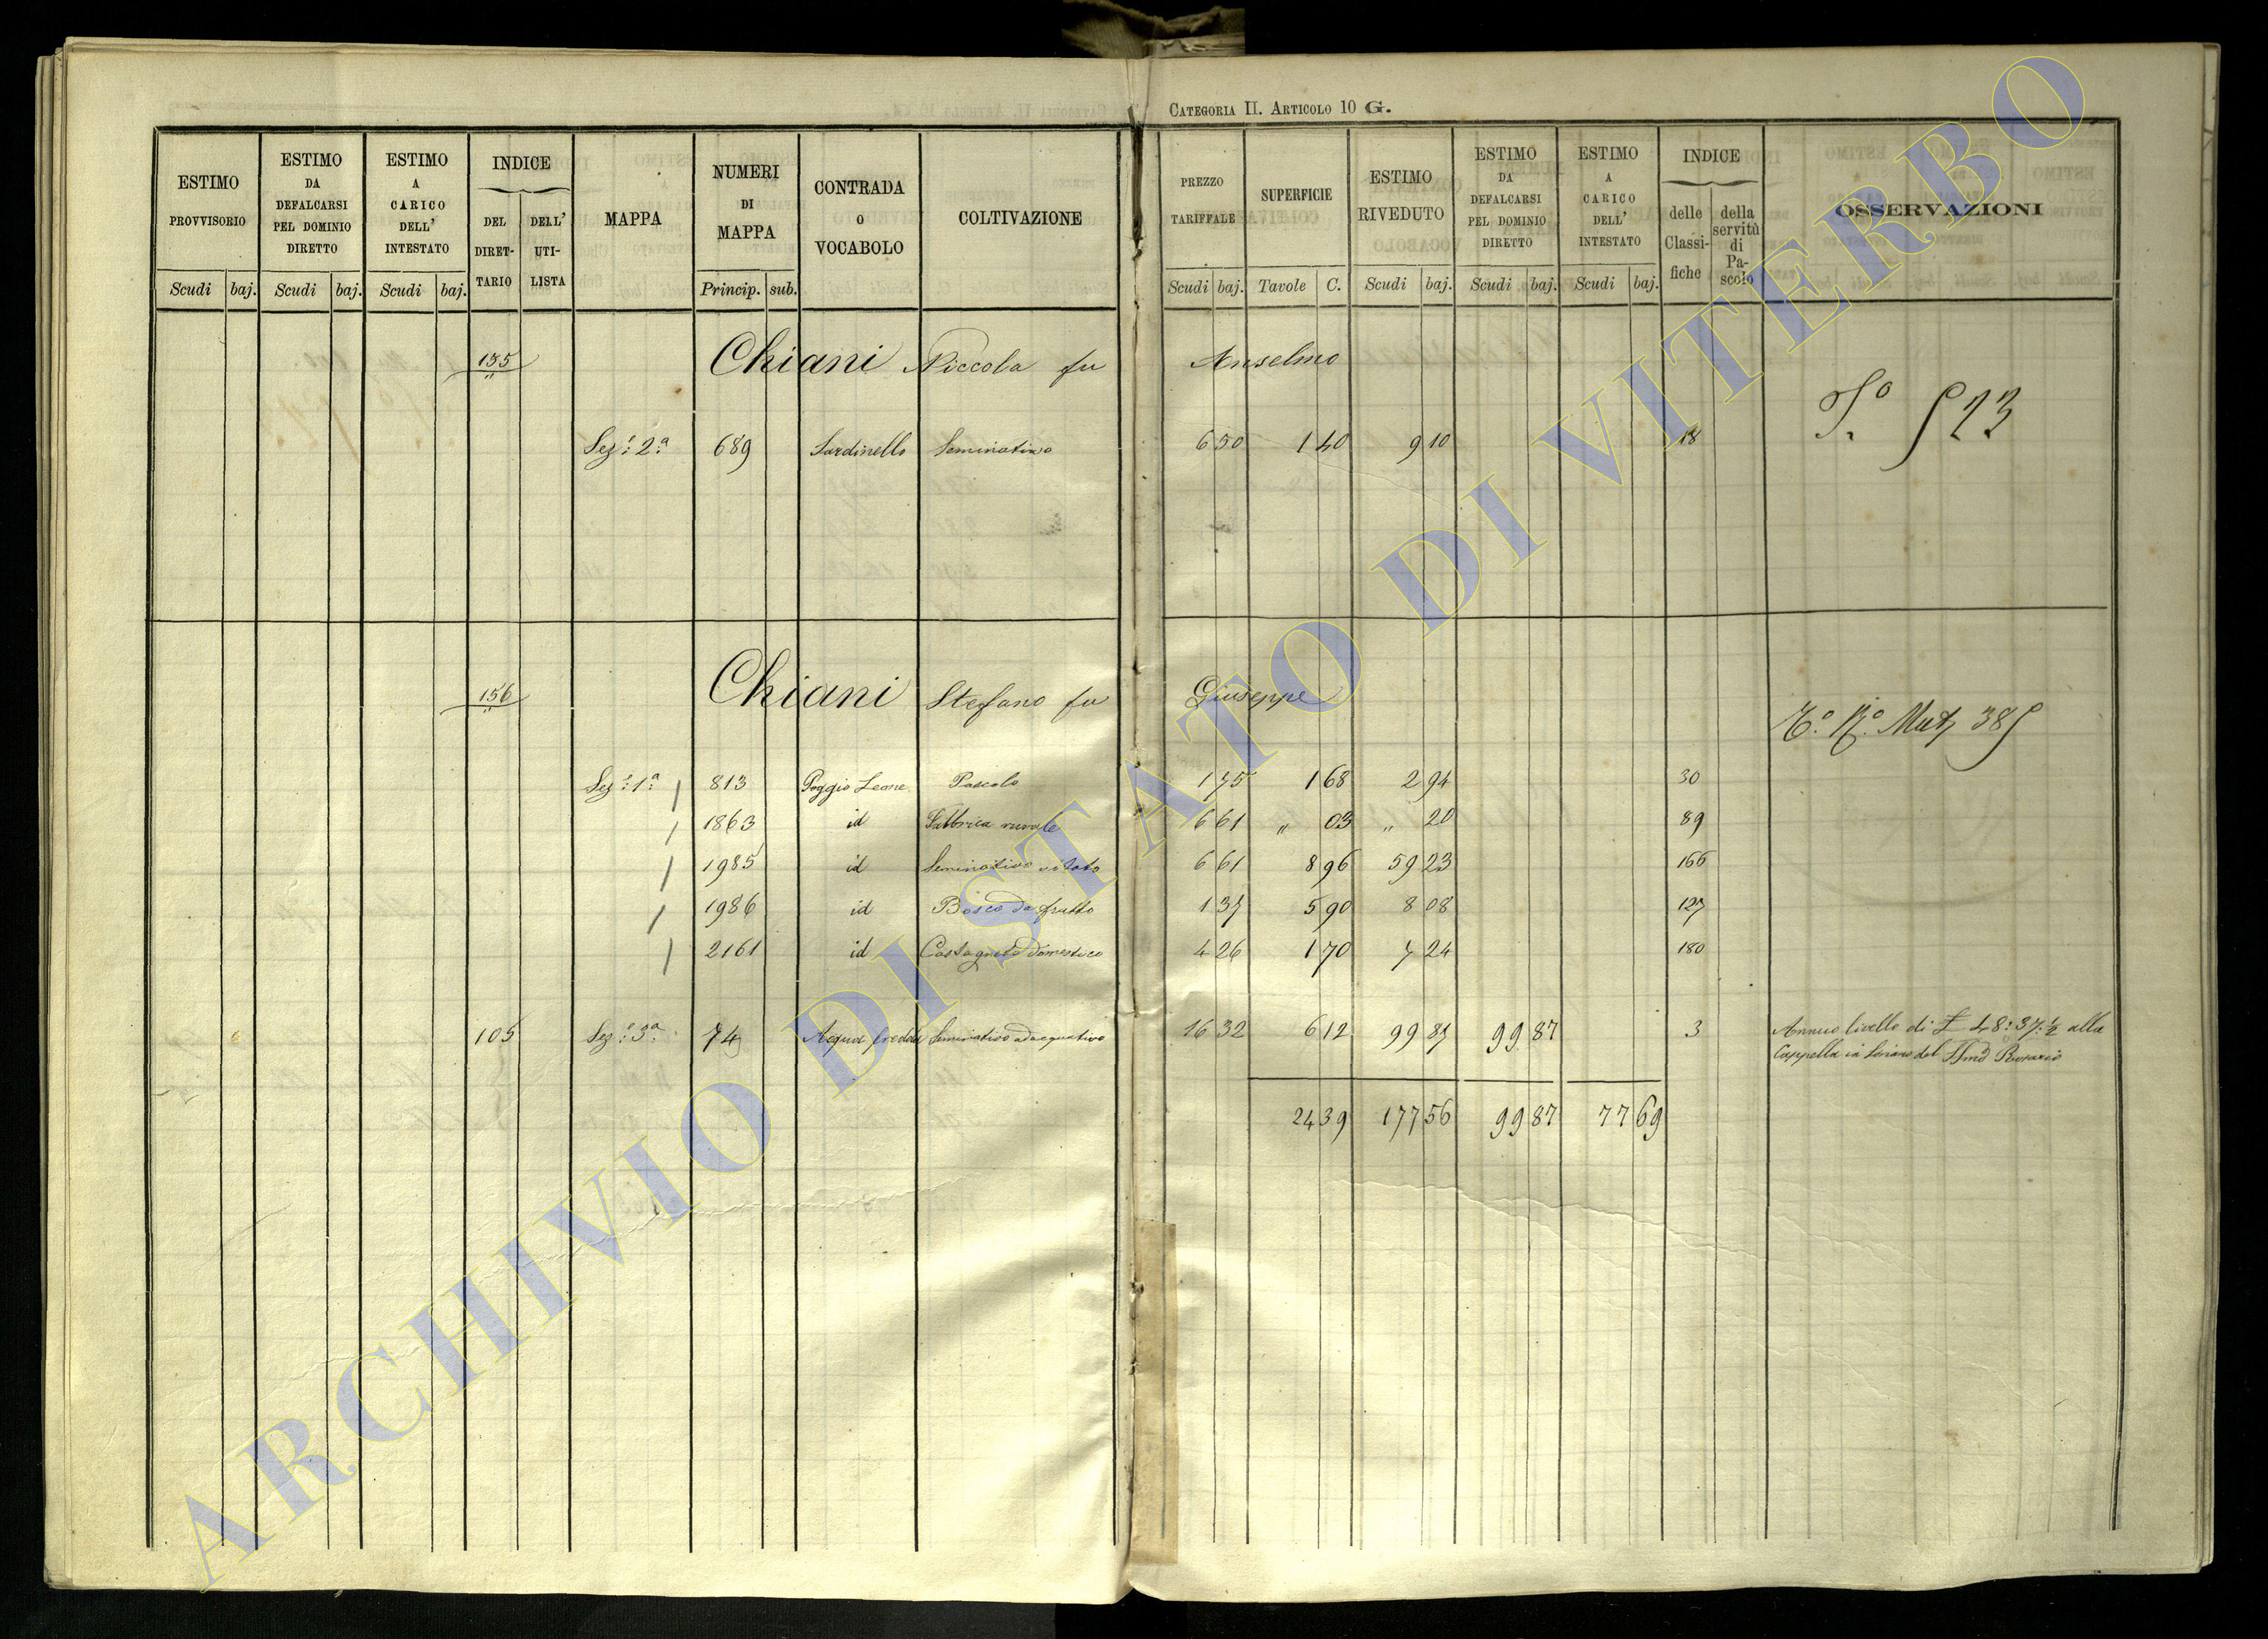 CATEGORIA II. ARTICOLO 10 G.
ESTIMO PROVVISORIO Scudi baj.
ESTIMO DA DEFALCARSI PEL DOMINIO DIRETTO Scudi baj.
ESTIMO A CARICO DELL' INTESTATO Scudi baj.
INDICE DEL DIRET-TARIO DELL' UTI-LISTA
MAPPA
NUMERI DI MAPPA Princip. sub.
CONTRADA O VOCABOLO
COLTIVAZIONE
PREZZO TARIFFALE Scudi baj.
SUPERFICIE Tavole C.
ESTIMO RIVEDUTO Scudi baj.
ESTIMO DA DEFALCARSI PEL DOMINIO DIRETTO Scudi baj.
ESTIMO A CARICO DELL' INTESTATO Scudi baj.
INDICE delle Classi-fiche della servitù di Pa-scolo
OSSERVAZIONI
155 Chiani Niccola fu Anselmo
Sez: 2a 689 Sardinello Seminativo 6 50 1 40 9 10 18
156 Chiani Stefano fu Giuseppe
Sez: 1a 813 Poggio Leone Pascolo 1 75 1 68 2 94 30
1863 id Fabbrica rurale 6 61 " 03 " 20 89
1985 id Seminativo vitato 6 61 8 96 59 23 166
1986 id Bosco da frutto 1 37 5 90 8 08 127
2161 id Castagneto domestico 4 26 1 70 7 24 180
105 Sez: 3a 74 Acqua fredda Seminativo adacquativo 16 32 6 12 99 87 99 87 3 Annuo livello di £ 48:37:½ alla
Cappella in Soriano del SSmo Rosario
24 39 177 56 99 87 77 69
ARCHIVIO DI STATO DI VITERBO